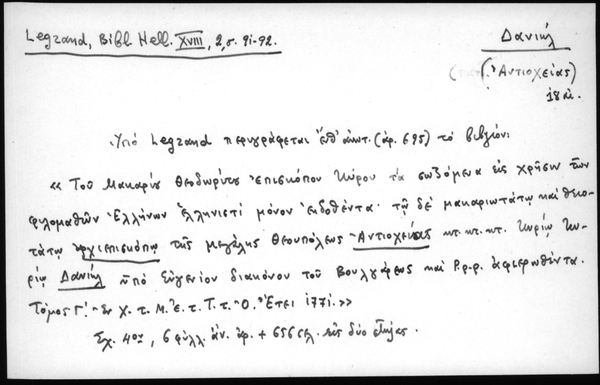 Legrand, Bibl Hell. XVIII, 2, σ. 91-92.
Δανιήλ
(πατ. Ἀντιοχείας)
18 αἰ.
Ὑπό Legrand περιγράφεται ἐνθ' ἀνωτ. (ἀρ. 695) τό βιβλίον:
« Τοῦ Μακαρίου Θεοδωρίτου ἐπισκόπου Κύρου τά σωζόμενα εἰς χρῆσιν τῶν
φιλομαθῶν Ἑλλήνων ἑλληνιστί μόνον ἐκδοθέντα· τῷ δέ μακαριωτάτῳ καί θειο-
τάτῳ ἀρχιεπισκόπῳ τῆς μεγάλης Θεουπόλεως Ἀντιοχείας κτ. κτ. κτ. Κυρίῳ Κυ-
ρίῳ Δανιήλ ὑπό Εὐγενίου διακόνου τοῦ Βουλγάρεως καί Ρ.ρ.ρ. ἀφιερωθέντα.
Τόμος Γ'. Ἐν Χ. τ. Μ. Ἐ. τ. Τ. τ. Ὀ. Ἔτει 1771. »
Σχ. 4ον, 6 φύλλ. ἀν. ἀρ. + 656 σελ. εἰς δύο στήλας.